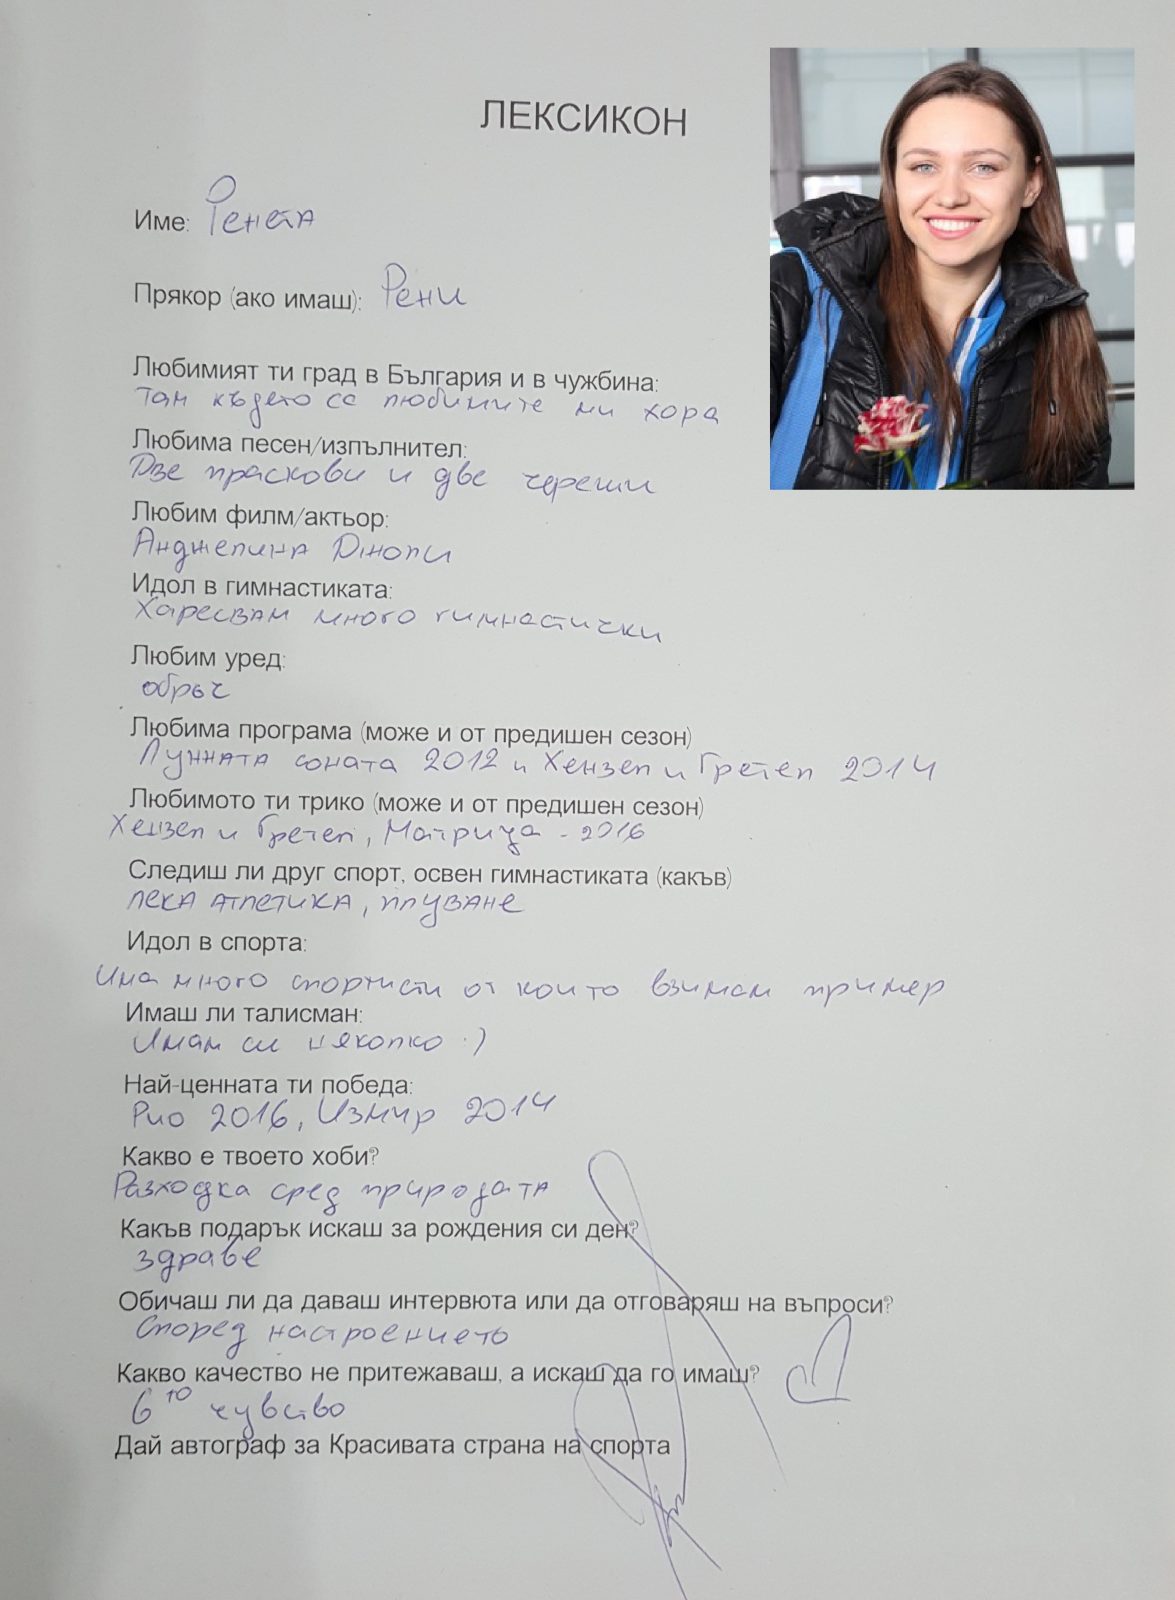 ЛЕКСИКОН
Име: Ренета
Прякор (ако имаш): Рени
Любимият ти град в България и в чужбина:
Там където са любимите ми хора
Любима песен/изпълнител:
Две праскови и две череши
Любим филм/актьор:
Анджелина Джоли
Идол в гимнастиката:
Харесвам много гимнастички
Любим уред:
обръч
Любима програма (може и от предишен сезон)
Лунната соната 2012 и Хензел и Гретел 2014
Любимото ти трико (може и от предишен сезон)
Хензел и Гретел, Матрица - 2016
Следиш ли друг спорт, освен гимнастиката (какъв)
лека атлетика, плуване
Идол в спорта:
Има много спортисти от които взимам пример
Имаш ли талисман:
Имам си няколко :)
Най-ценната ти победа:
Рио 2016, Измир 2014
Какво е твоето хоби?
Разходка сред природата
Какъв подарък искаш за рождения си ден?
здраве
Обичаш ли да даваш интервюта или да отговаряш на въпроси?
Според настроението
Какво качество не притежаваш, а искаш да го имаш?
6то чувство
Дай автограф за Красивата страна на спорта